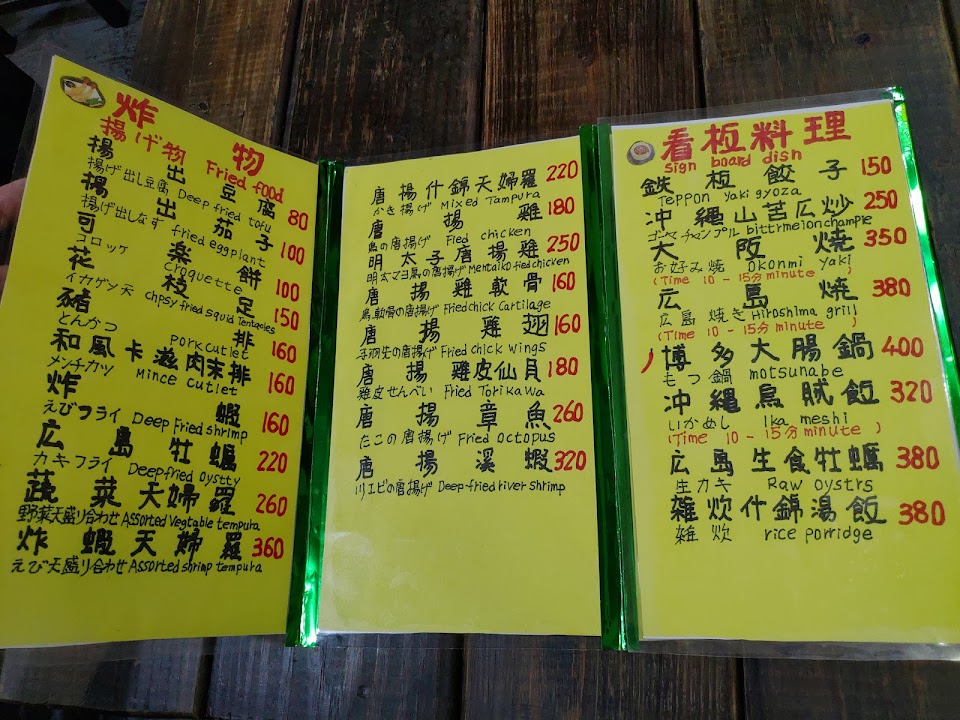 炸物
揚げ物 Fried food
揚出豆腐 80
揚げ出し豆腐 Deep fried tofu
揚出茄子 100
揚げ出しなす fried eggplant
可楽餅 100
コロッケ Croquette
花枝足 150
イカゲソ天 chpsy fried squid Tentacles
豬排 160
とんかつ pork cutlet
和風卡滋肉末排 160
メンチカツ Mince cutlet
炸蝦 160
えびフライ Deep Fried shrimp
広島牡蠣 220
カキフライ Deep fried oystty
蔬菜天婦羅 260
野菜天盛り合わせ Assorted Vegtable tempura
炸蝦天婦羅 360
えび天盛り合わせ Assorted shrimp tempura
唐揚什錦天婦羅 220
かき揚げ Mixed Tampura
唐揚雞 180
鳥の唐揚げ Fied chicken
明太子唐揚雞 250
明太マヨ鳥の唐揚げ Mentaiko fied chicken
唐揚雞軟骨 160
鳥軟骨の唐揚げ Fried chick Cartilage
唐揚雞翅 160
手羽先の唐揚げ Fried chick wings
唐揚雞皮仙貝 180
雞皮せんべい Fried Torikawa
唐揚章魚 260
たこの唐揚げ Fried Octopus
唐揚溪蝦 320
川エビの唐揚げ Deep-fried river shrimp
看板料理
Sign board dish
鉄板餃子 150
Teppon yaki gyoza
沖縄山苦瓜炒 250
ゴーヤチャンプル bittrmelon chample
大阪焼 350
お好み焼 Okonmi yaki
(Time 10-15分 minute)
広島焼 380
広島焼き Hiroshima grill
(Time 10-15分 minute)
博多大腸鍋 400
もつ鍋 motsunabe
沖縄烏賊飯 320
いかめし Ika meshi
(Time 10-15分 minute)
広島生食牡蠣 380
生カキ Raw oystrs
雑炊什錦湯飯 380
雑炊 rice porridge